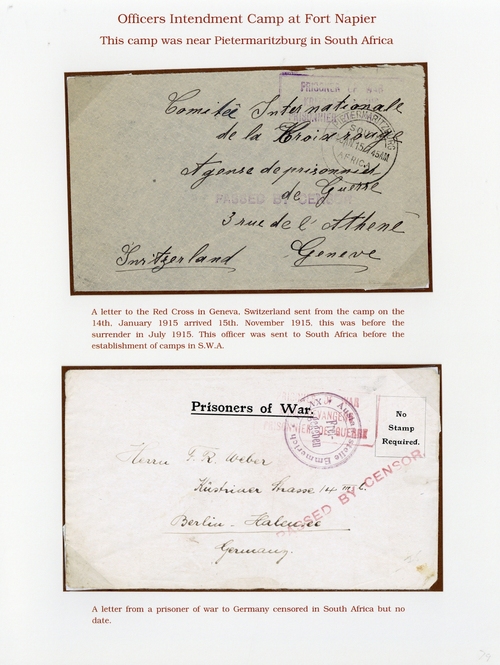 Officers Intendment Camp at Fort Napier
This camp was near Pietermaritzburg in South Africa
PRISONER OF WAR
Comité Internationale
de la Croix rouge
PIETERMARITZBURG
15 45AM
AFRICA
Agense de prisonnies
de Guerre
PASSED BY CENSOR
3 rue de l'Athené
Switzerland Geneve
A letter to the Red Cross in Geneva, Switzerland sent from the camp on the
14th. January 1915 arrived 15th. November 1915, this was before the
surrender in July 1915. This officer was sent to South Africa before the
establishment of camps in S.W.A.
Prisoners of War.
No
Stamp
Required.
Auslandstelle Emmerich
Herrn F. R. Weber
Küstriner Strasse 14
PASSED BY CENSOR
Berlin - Halensee
Germany.
A letter from a prisoner of war to Germany censored in South Africa but no
date.